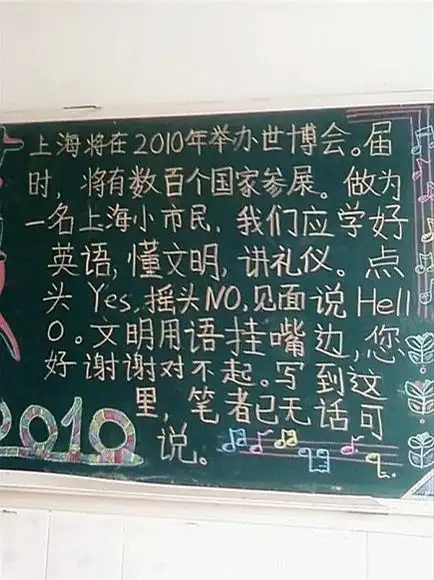 上海将在2010年举办世博会。届
时，将有数百个国家参展。做为
一名上海小市民，我们应学好
英语，懂文明，讲礼仪。点
头Yes，摇头NO，见面说Hell
O。文明用语挂嘴边，您
好谢谢对不起。写到这
里，笔者已无话可
说。
2010